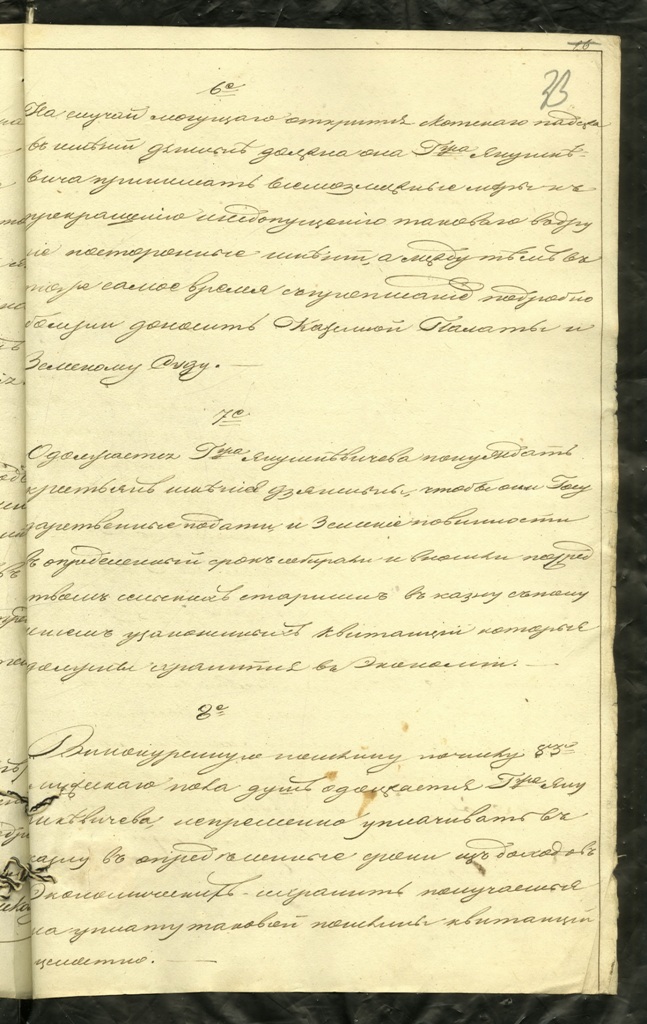 16
23
6е
На случай могущаго открытия скотскаго падежа
въ имѣнии должна она Гжа Янушке-
вича принимать всевозможные меры къ
прекращению и недопущению таковаго в дру
гие посторонные имѣнии, а между тѣмъ в
тоже самое время съ прописаниемъ подробно
болезни доносить Казенной Палаты и
Земскому Суду. —
7е
Одолжается Гжа Янушкевичева понуждать
крестьянъ имѣния чтобы они Госу
дарственные подати и Земские повинности
въ определенный срокъ собирали и вносили посред
ствомъ сельскихъ старшинъ въ казну съ полу
чениемъ узаконенныхъ квитанций которые
должны хранится въ Экономии. —
8е
Винокуренную пошлину по числу
мужескаго пола душъ одолжается Гжа Яну
шкевичева, непременно уплачивать въ
казну въ определенные сроки изъ доходовъ
Экономическихъ и хранить получаемые
на уплату таковой пошлины квитанции
целостно. —